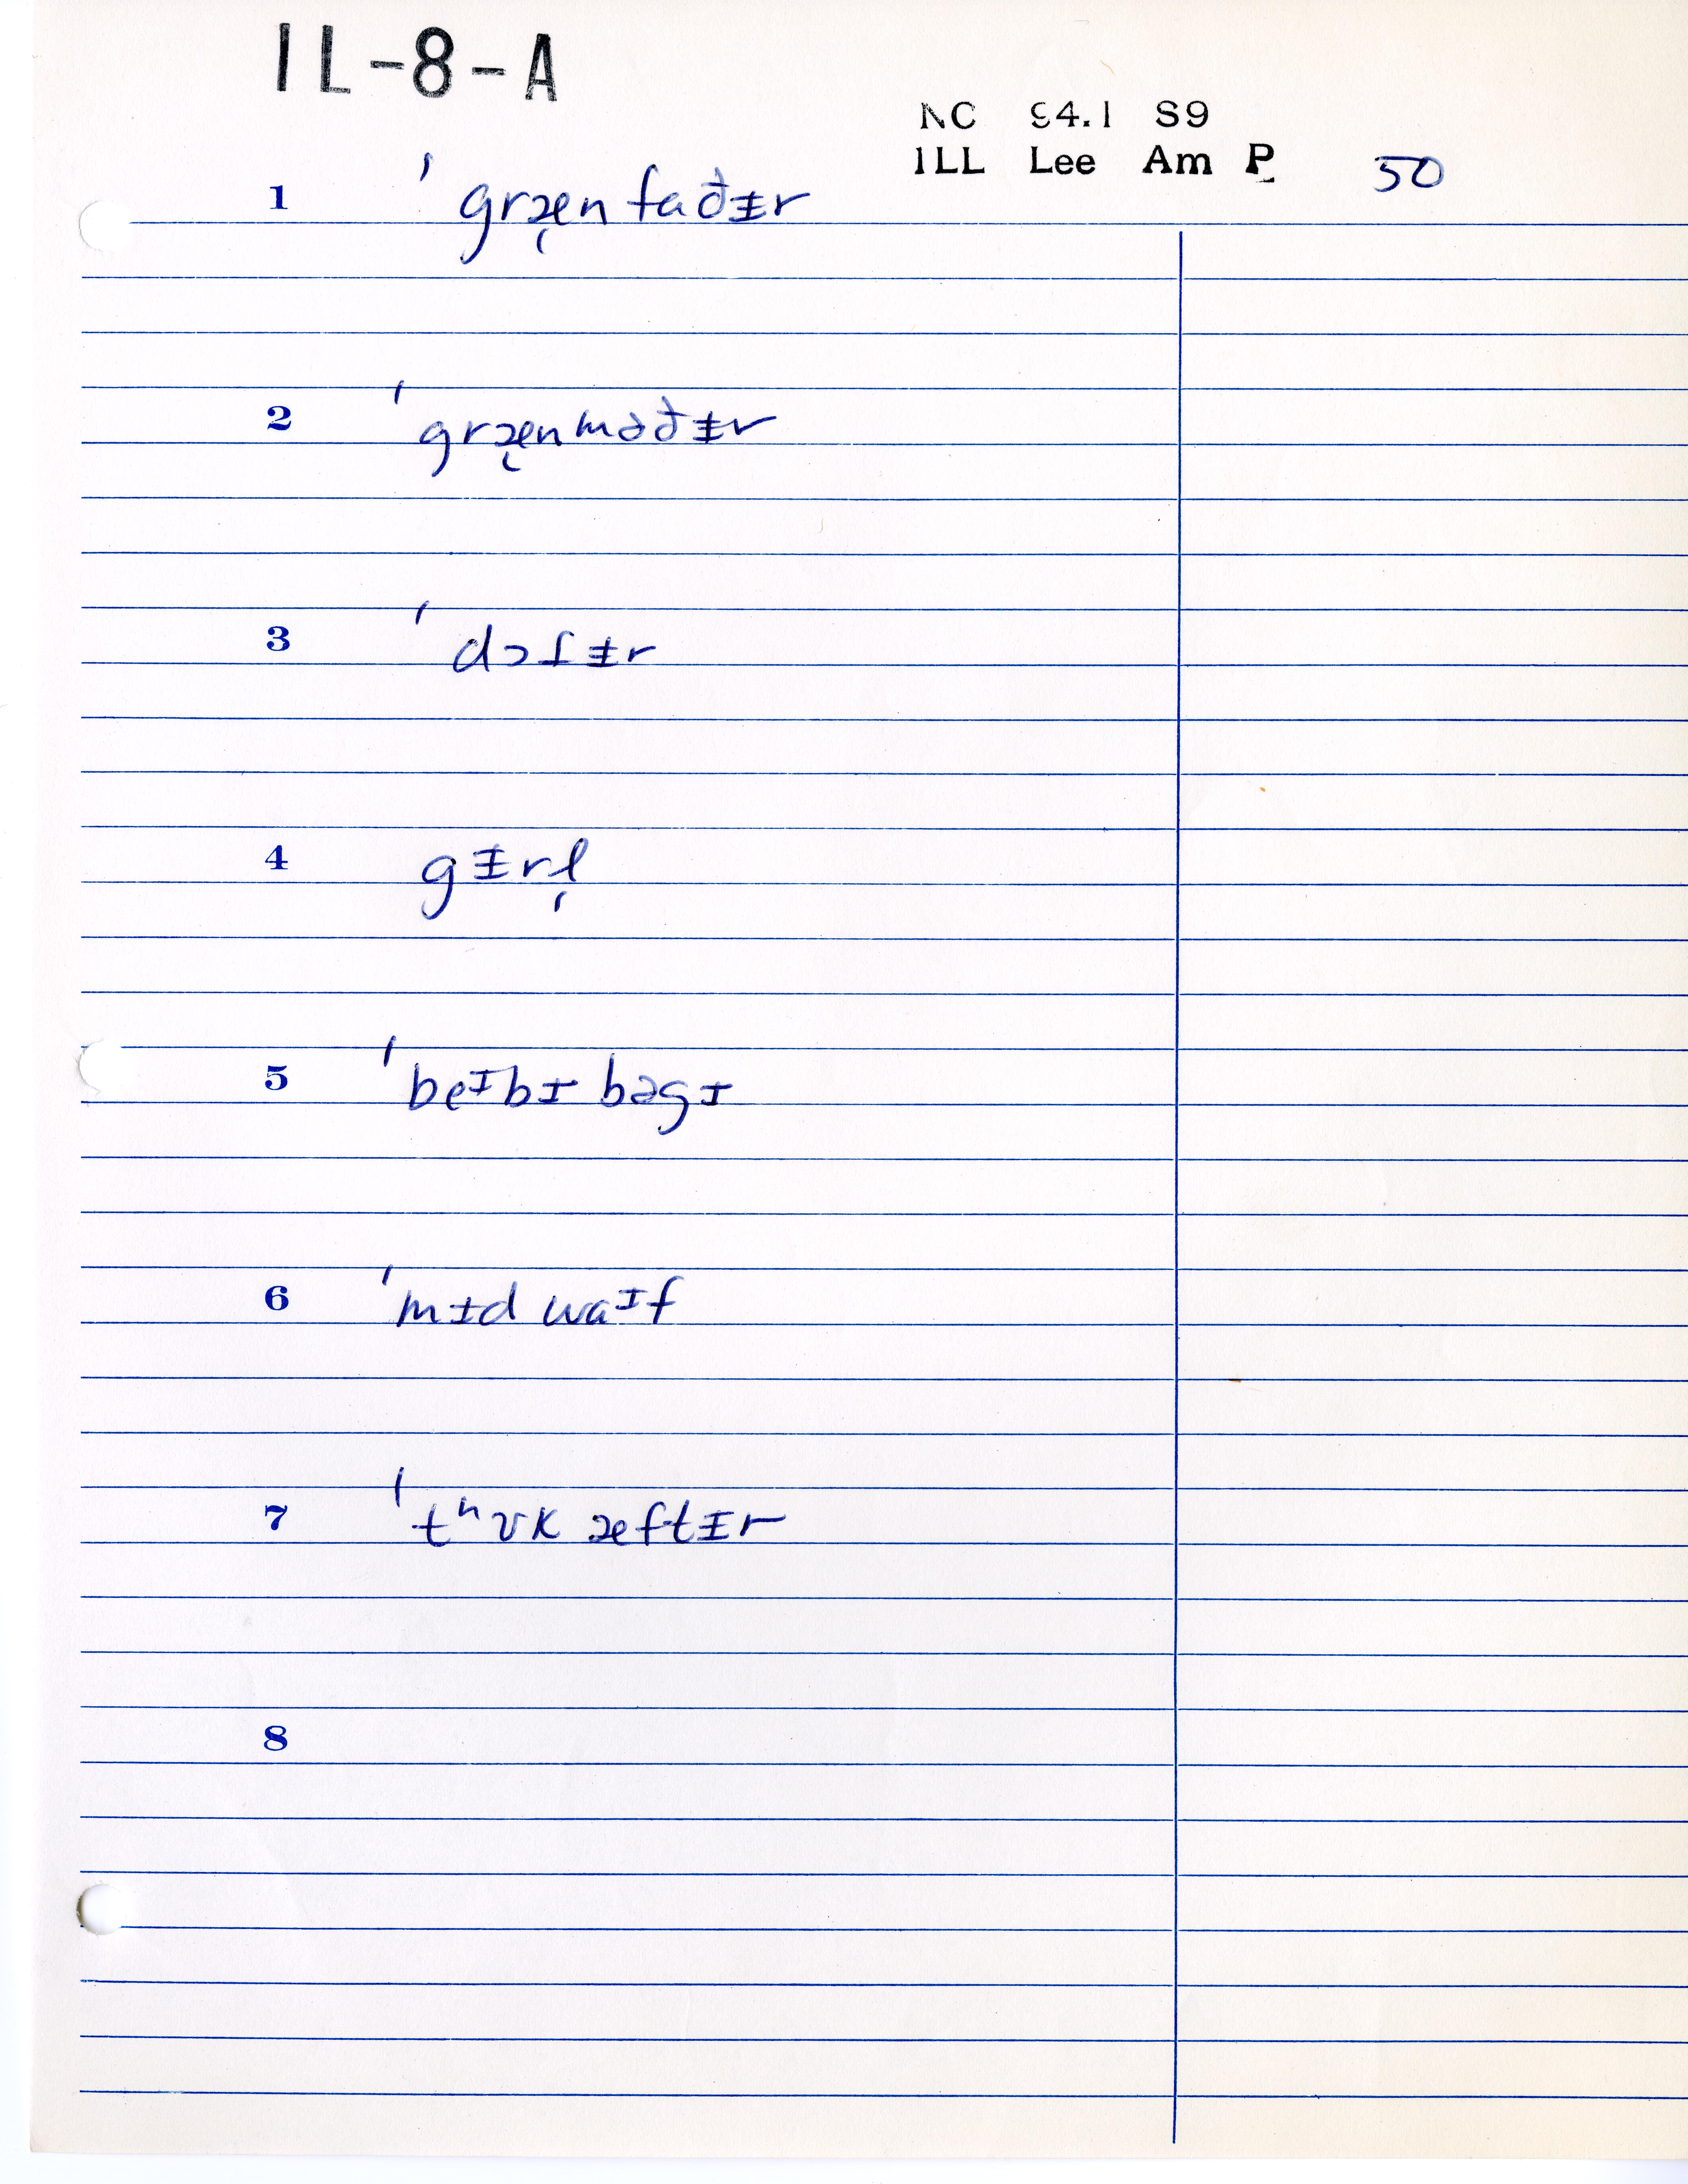 IL-8-A
NC 94.1 S9
ILL Lee Am P 50
1 ˈgræ̨nfaðɨr
2 ˈgræ̨nməðɨr
3 ˈdɔſɨr
4 gɨrl̩
5 ˈbeᶦbɪ bəgɪ
6 ˈmɪd waᶦf
7 ˈtʰʊk æftɨr
8